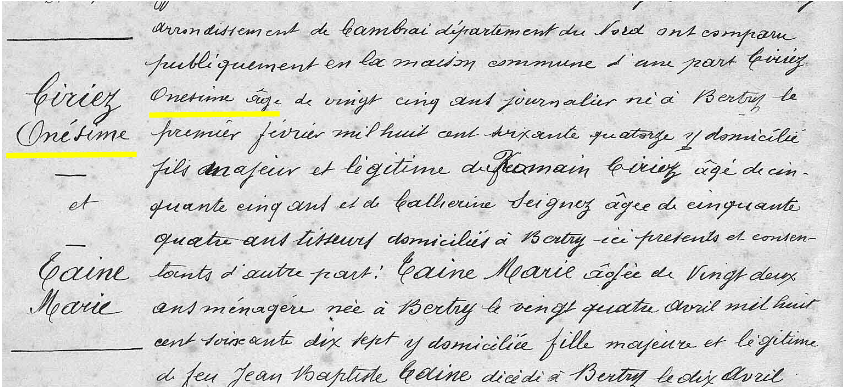 Ciriez
Onésime
et
Taine
Marie
arrondissement de Cambrai département du Nord ont comparu
publiquement en la maison commune d'une part Ciriez
Onésime âgé de vingt cinq ans journalier né à Bertry le
premier février mil huit cent soixante quatorze y domicilié
fils majeur et légitime de Romain Ciriez âgé de cin-
quante cinq ans et de Catherine Seignez âgée de cinquante
quatre ans tisseurs domiciliés à Bertry ici présents et consen-
tants d'autre part: Taine Marie âgée de Vingt deux
ans ménagère née à Bertry le vingt quatre Avril mil huit
cent soixante dix sept y domiciliée fille majeure et légitime
de feu Jean Baptiste Taine décédé à Bertry le dix Avril